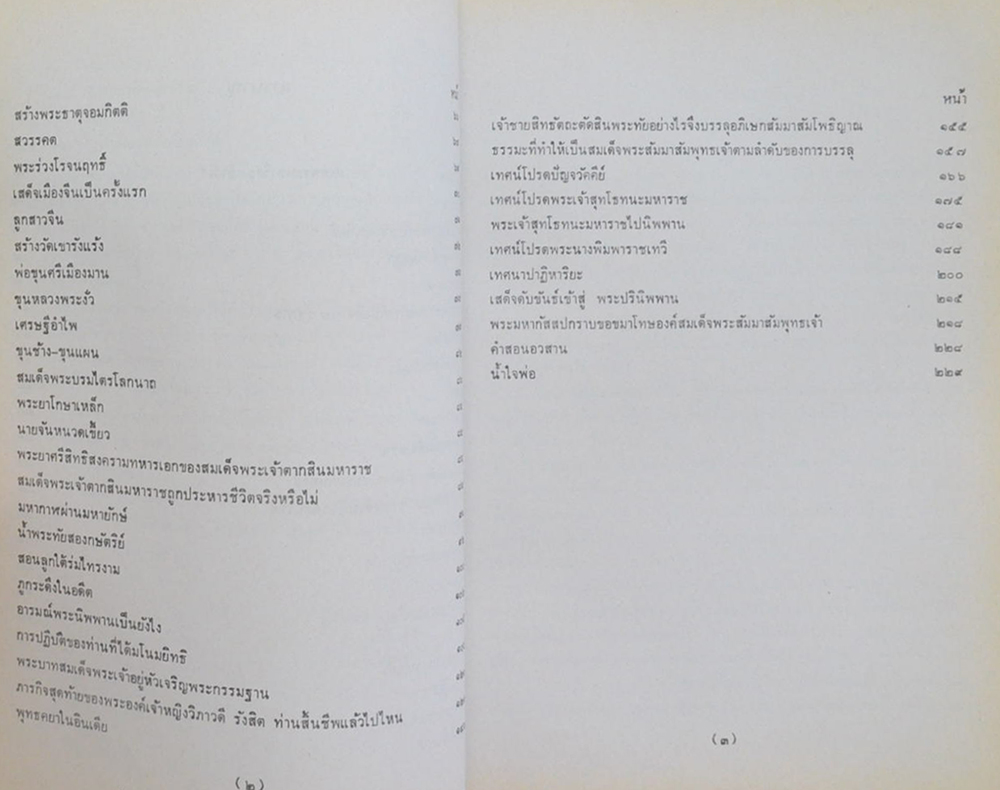 สร้างพระธาตุจอมกิตติ
สวรรคต
พระร่วงโรจนฤทธิ์
เสด็จเมืองจีนเป็นครั้งแรก
ลูกสาวจีน
สร้างวัดเขารังแร้ง
พ่อขุนศรีเมืองมาน
ขุนหลวงพระงั่ว
เศรษฐีอำไพ
ขุนช้าง-ขุนแผน
สมเด็จพระบรมไตรโลกนาถ
พระยาโกษาเหล็ก
นายจันหนวดเขี้ยว
พระยาศรีสิทธิสงครามทหารเอกของสมเด็จพระเจ้าตากสินมหาราช
สมเด็จพระเจ้าตากสินมหาราชถูกประหารชีวิตจริงหรือไม่
มหากาฬผ่านมหายักษ์
น้ำพระทัยสองกษัตริย์
สอนลูกใต้ร่มไทรงาม
ภูกระดึงในอดีต
อารมณ์พระนิพพานเป็นยังไง
การปฏิบัติของท่านที่ได้มโนมยิทธิ
พระบาทสมเด็จพระเจ้าอยู่หัวเจริญพระกรรมฐาน
ภารกิจสุดท้ายของพระองค์เจ้าหญิงวิภาวดี รังสิต ท่านสิ้นชีพแล้วไปไหน
พุทธคยาในอินเดีย
(๒)
หน้า
เจ้าชายสิทธัตถะตัดสินพระทัยอย่างไรจึงบรรลุอภิเษกสัมมาสัมโพธิญาณ ๑๕๕
ธรรมะที่ทำให้เป็นสมเด็จพระสัมมาสัมพุทธเจ้าตามลำดับของการบรรลุ ๑๕๗
เทศน์โปรดปัญจวัคคีย์ ๑๖๖
เทศน์โปรดพระเจ้าสุทโธทนะมหาราช ๑๗๕
พระเจ้าสุทโธทนะมหาราชไปนิพพาน ๑๘๑
เทศน์โปรดพระนางพิมพาราชเทวี ๑๘๔
เทศนาปาฏิหาริยะ ๒๐๐
เสด็จดับขันธ์เข้าสู่ พระปรินิพพาน ๒๑๕
พระมหากัสสปกราบขอขมาโทษองค์สมเด็จพระสัมมาสัมพุทธเจ้า ๒๑๘
คำสอนอวสาน ๒๒๘
น้ำใจพ่อ ๒๒๙
(๓)